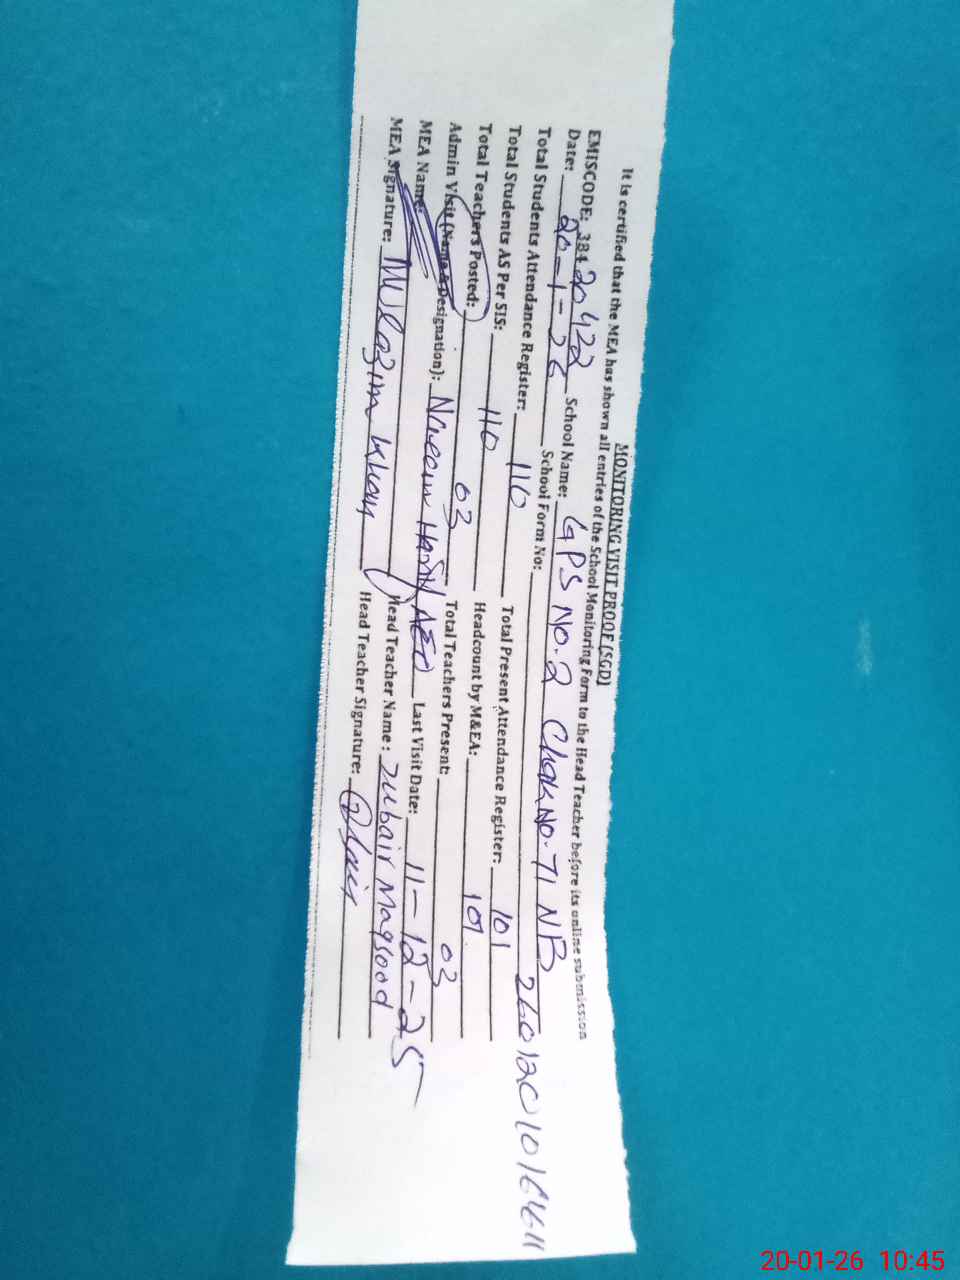 MONITORING VISIT PROOF (SGD)
It is certified that the MEA has shown all entries of the School Monitoring Form to the Head Teacher before its online submission
EMISCODE: 38420422 School Name: GPS No. 2 Chak No. 71 NB
Date: 20-1-26 School Form No: 26012010164611
Total Students Attendance Register: 110 Total Present Attendance Register: 101
Total Students AS Per SIS: 110 Headcount by M&EA: 101
Total Teachers Posted: 03 Total Teachers Present: 03
Admin Visit (Name & Designation): Naeem AEO Last Visit Date: 11-12-25
MEA Name: Mulazim Khan Head Teacher Name: Zubair Maqsood
MEA Signature: Head Teacher Signature:
20-01-26 10:45